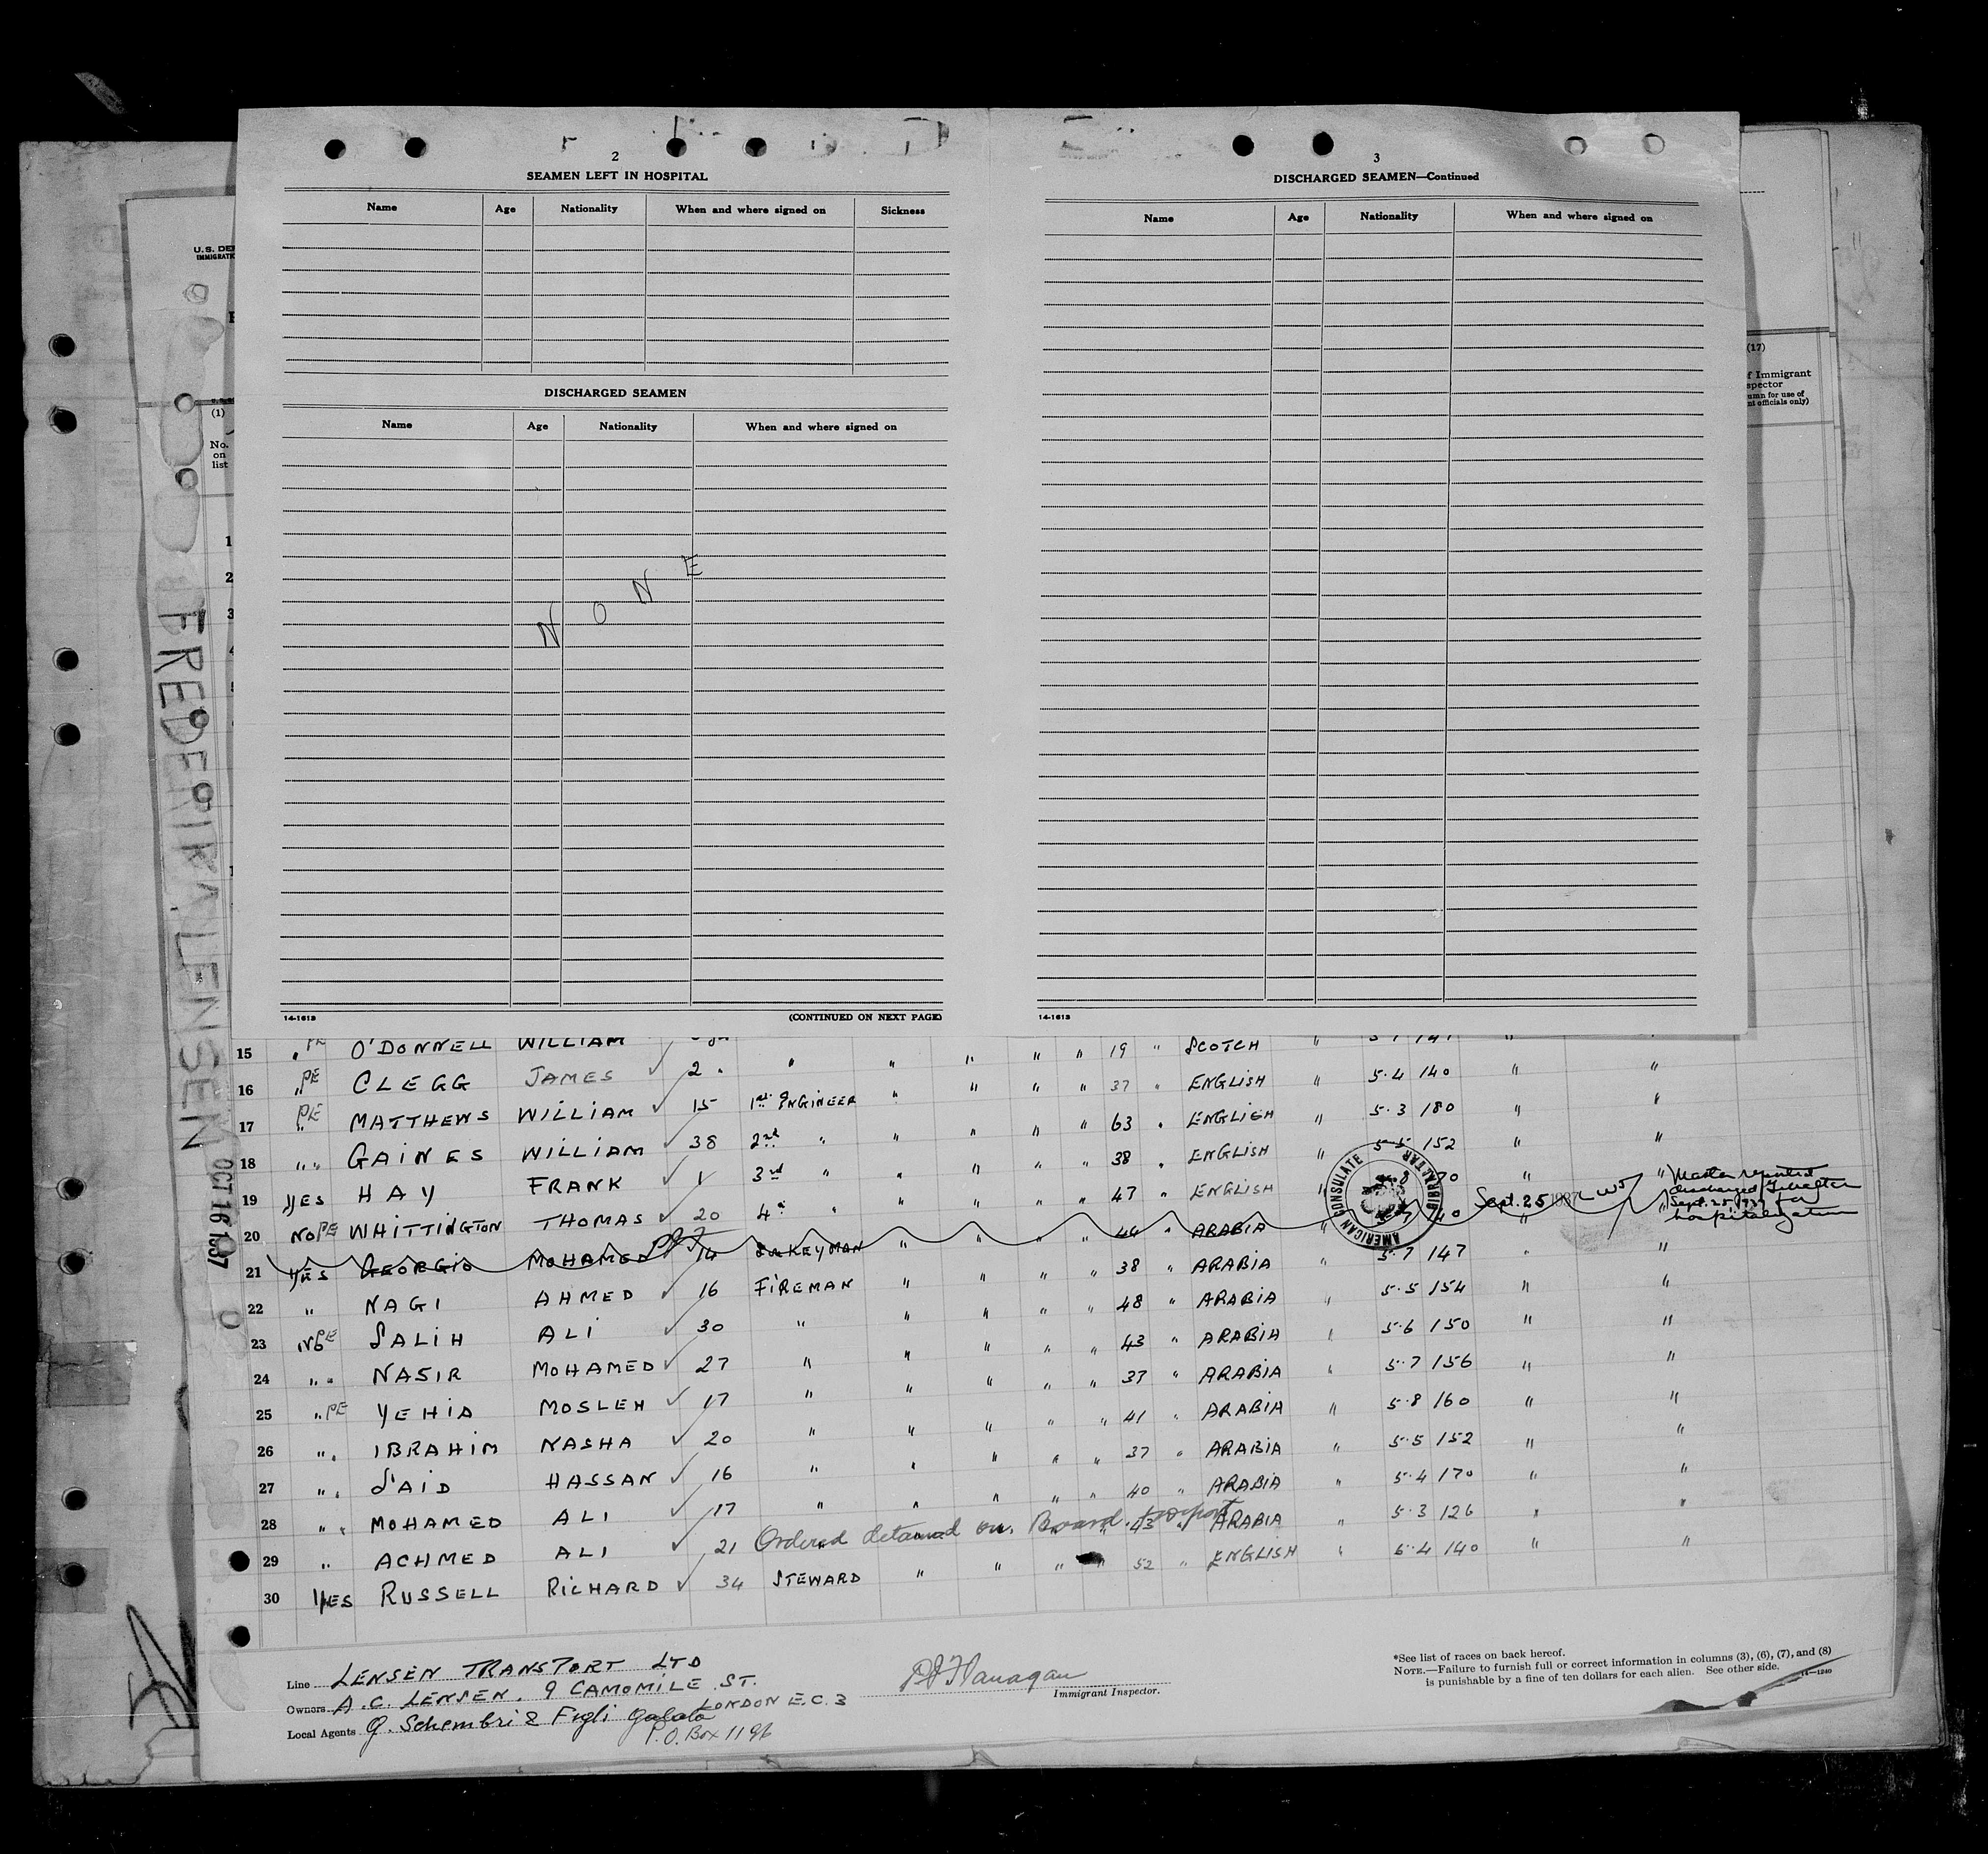 2
SEAMEN LEFT IN HOSPITAL
Name Age Nationality When and where signed on Sickness
DISCHARGED SEAMEN
Name Age Nationality When and where signed on
NONE
14-1613
(CONTINUED ON NEXT PAGE)
3
DISCHARGED SEAMEN—Continued
Name Age Nationality When and where signed on
14-1613
U.S. DE
IMMIGRAT
(1)
No.
on
list
1
2
3
(17)
f Immigrant
spector
umn for use of
nt officials only)
FREDERIKA LENSEN
OCT 16 1937
15 " PE O'DONNELL WILLIAM " " " " " 19 " SCOTCH "
16 " PE CLEGG JAMES ✓ 2 " " " " " " 37 " ENGLISH " 5.4 140 " "
17 " PE MATTHEWS WILLIAM ✓ 15 1st ENGINEER " " " " 63 " ENGLISH " 5.3 180 " "
18 " " GAINES WILLIAM ✓ 38 2nd " " " " " 38 " ENGLISH " 5.5 152 " "
19 YES HAY FRANK ✓ 1 3rd " " " " " 47 " ENGLISH " "
20 NO PE WHITTINGTON THOMAS ✓ 20 4th " " " " " 44 " ARABIA " "
21 YES GEORGIO MOHAMED 14 DONKEYMAN " " " " 38 " ARABIA " 5.7 147 " "
22 " NAGI AHMED ✓ 16 FIREMAN " " " " 48 " ARABIA " 5.5 154 " "
23 NO PE SALIH ALI ✓ 30 " " " " " 43 " ARABIA " 5.6 150 " "
24 " " NASIR MOHAMED ✓ 27 " " " " " 37 " ARABIA " 5.7 156 " "
25 " PE YEHIA MOSLEH ✓ 17 " " " " " 41 " ARABIA " 5.8 160 " "
26 " " IBRAHIM NASHA ✓ 20 " " " " " 37 " ARABIA " 5.5 152 " "
27 " " SAID HASSAN ✓ 16 " " " " " 40 " ARABIA " 5.4 170 " "
28 " " MOHAMED ALI ✓ 17 " " " " " 43 " ARABIA " 5.3 126 " "
29 " ACHMED ALI ✓ 21 Ordered detained on Board 52 " ENGLISH " 5.4 140 " "
30 YES RUSSELL RICHARD ✓ 34 STEWARD " " " "
AMERICAN CONSULATE GIBRALTAR
Sept. 25 1937
Master reported
discharged Gibraltar
Sept. 25, 1937 for
hospitalization
Line LENSEN TRANSPORT LTD
Owners A.C. LENSEN, 9 CAMOMILE ST.
LONDON E.C. 3
Local Agents G. Schembri & Figli Galata
P.O. Box 1196
PJ Flanagan
Immigrant Inspector.
*See list of races on back hereof.
NOTE.—Failure to furnish full or correct information in columns (3), (6), (7), and (8)
is punishable by a fine of ten dollars for each alien. See other side. 14—1240